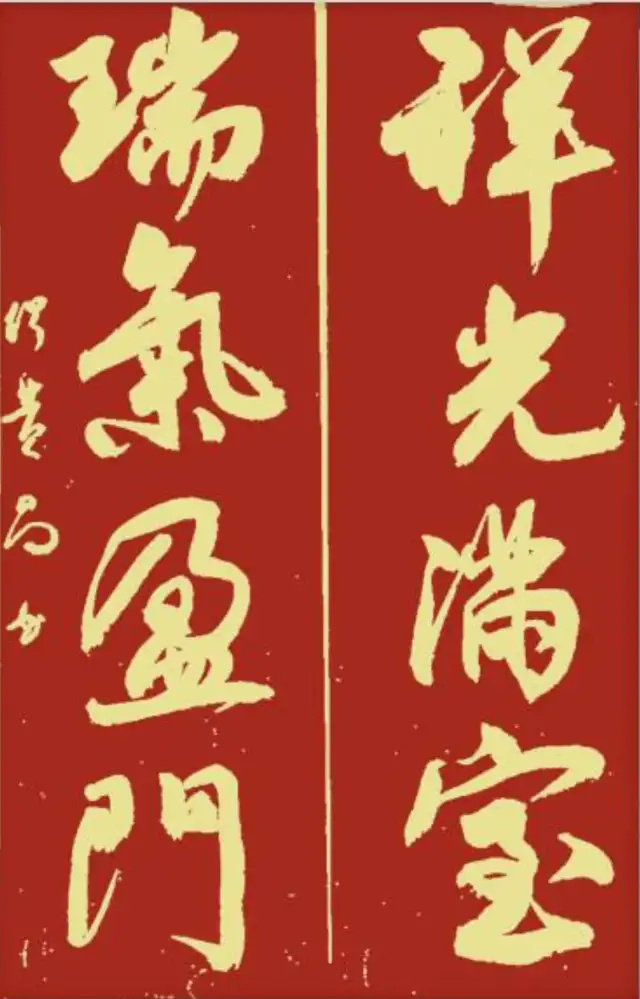 祥光满室
瑞氣盈門